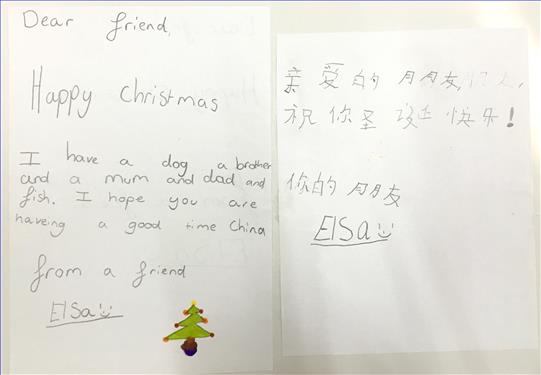 Dear friend,
Happy Christmas
I have a dog a brother
and a mum and dad and
fish. I hope you are
haveing a good time China
from a friend
Elsa
亲爱的朋友,
祝你圣诞快乐!
你的朋友
Elsa